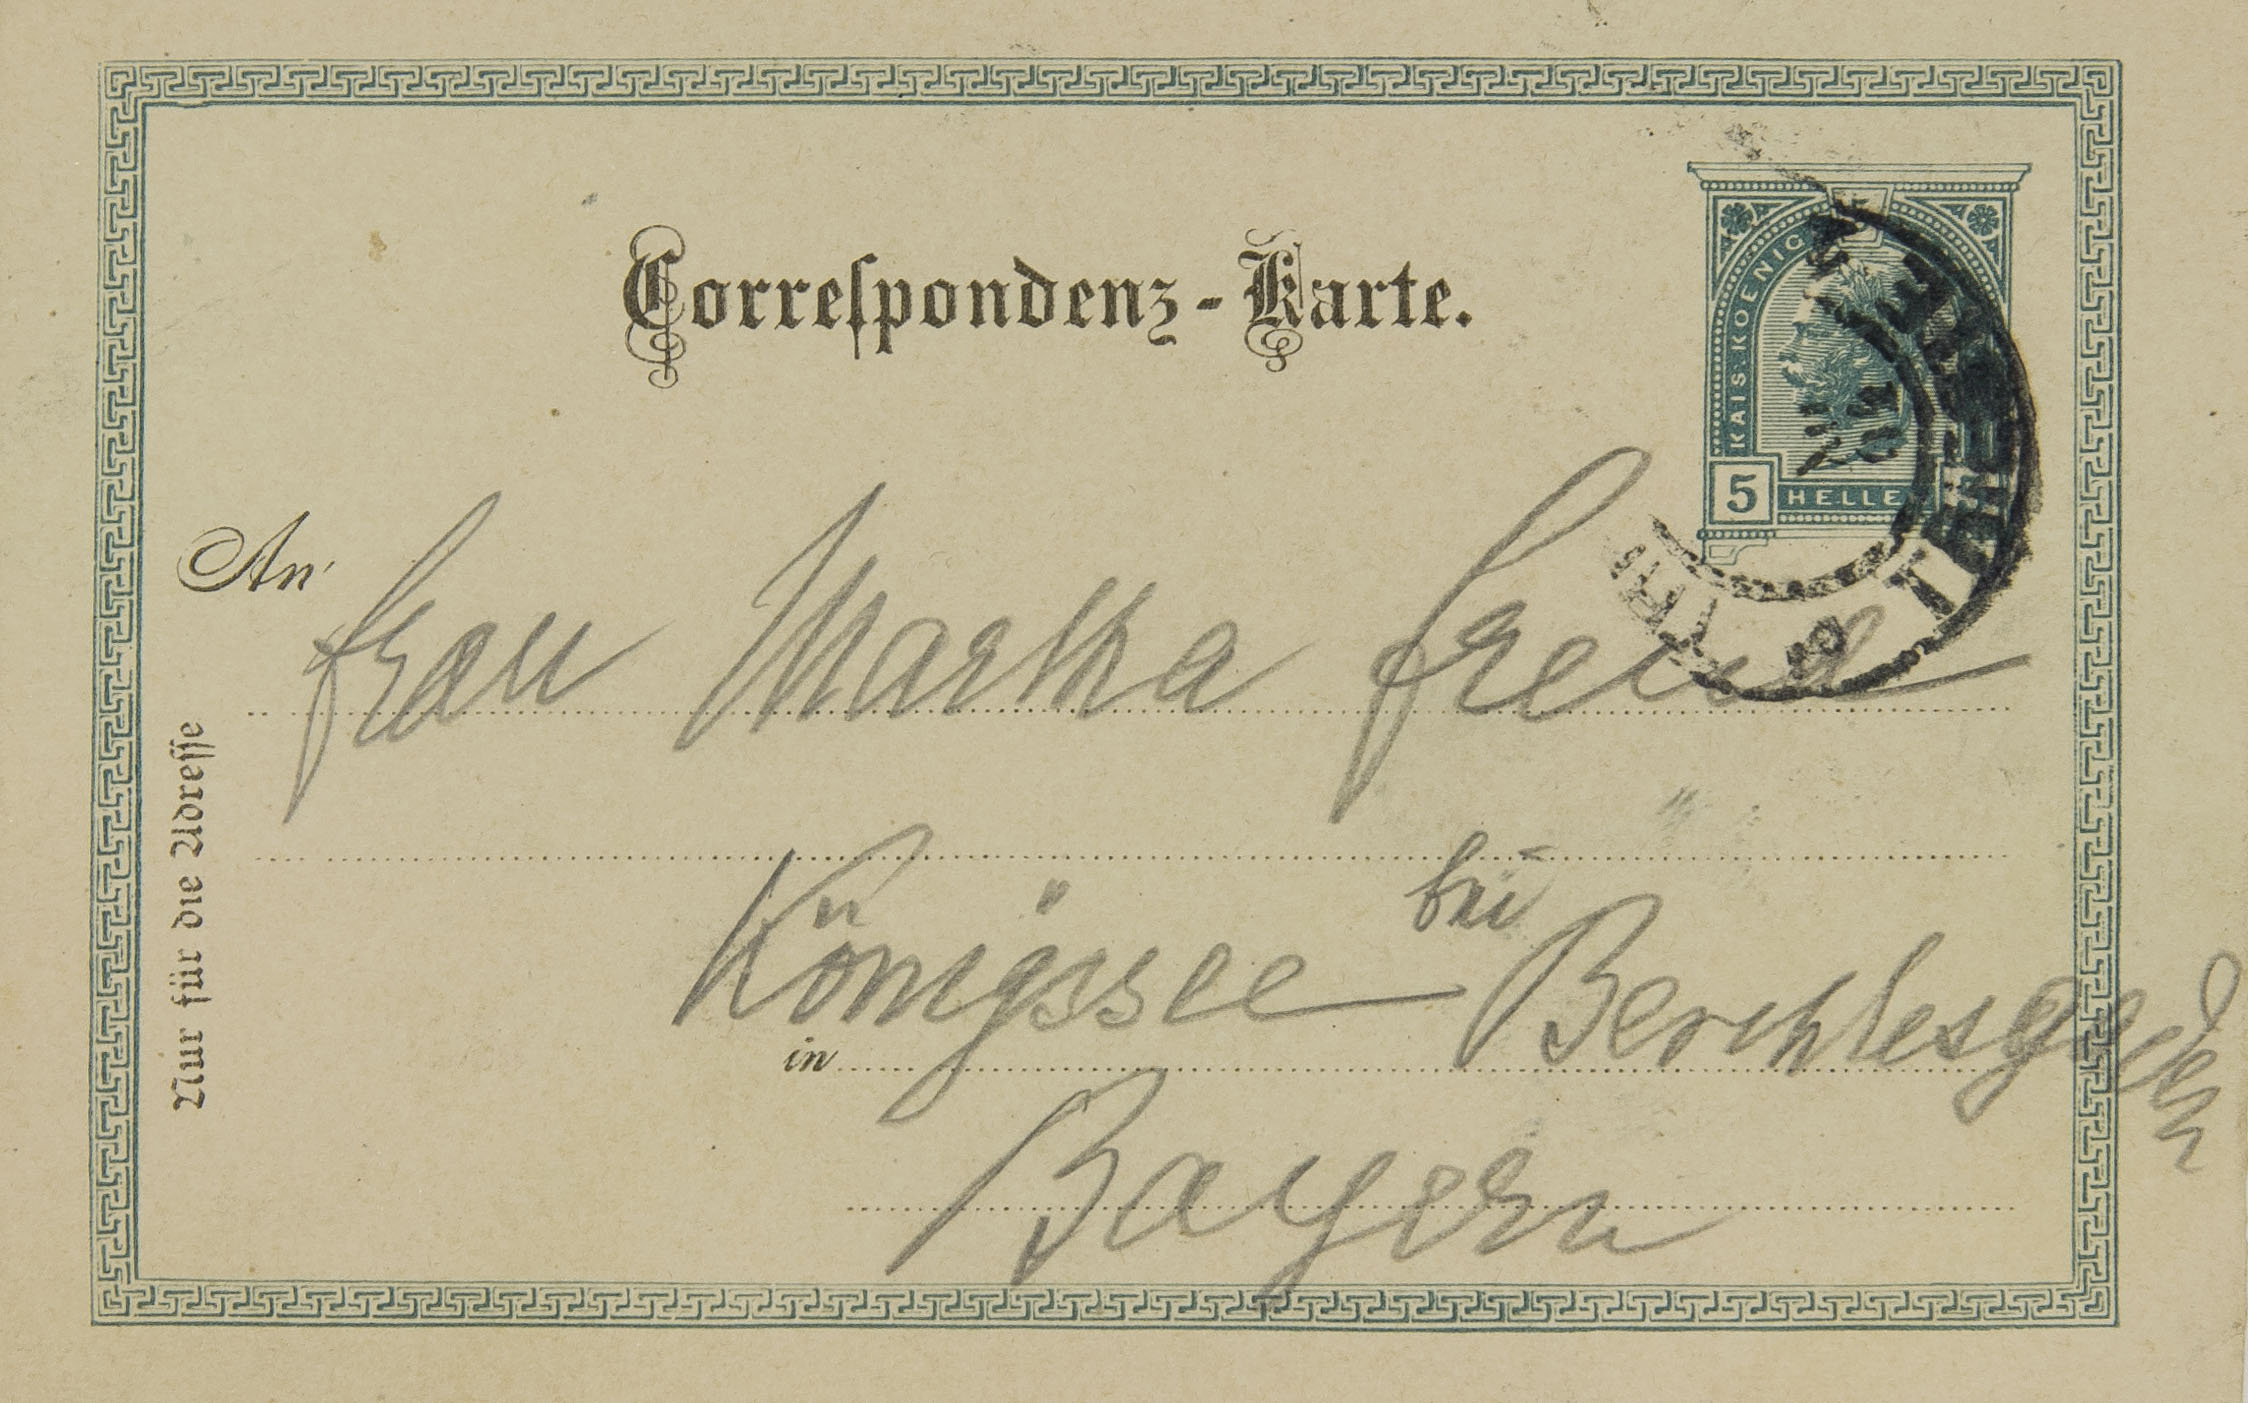 Correspondenz-Karte.
KAIS. KOENIG
5 HELLE
An
Frau Martha Freud
Königssee bei Berchtesgaden
in
Bayern
Nur für die Adresse